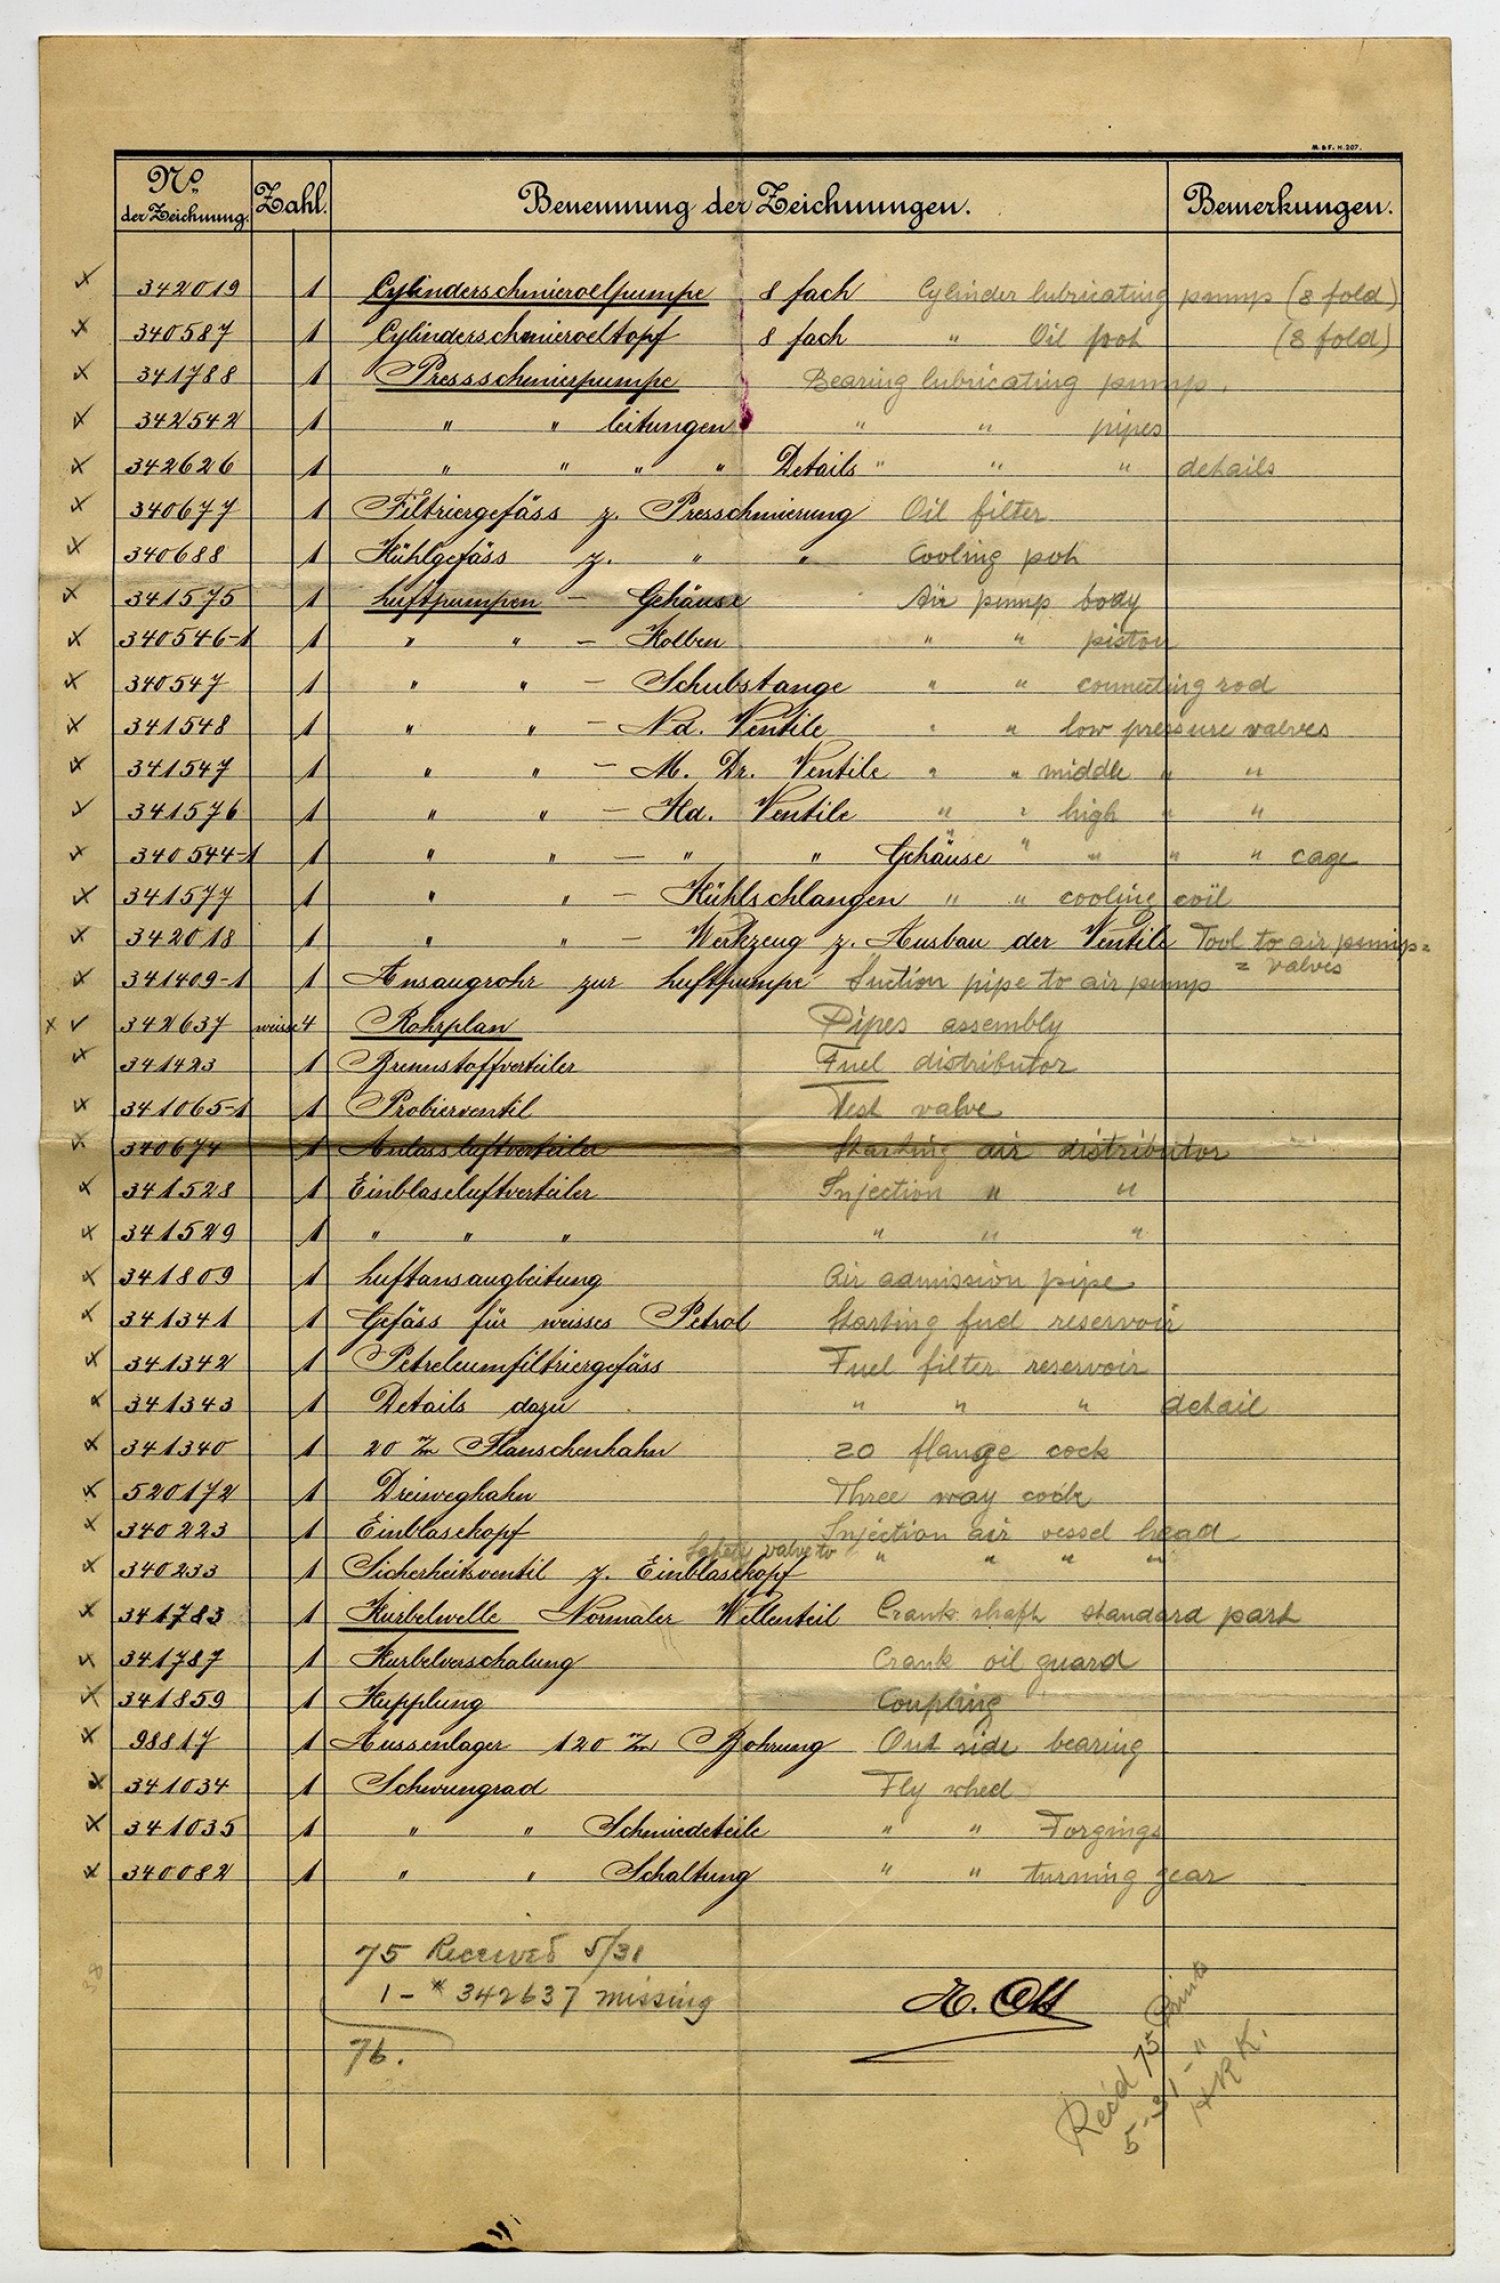 M. & F. H. 207.
No. der Zeichnung. Zahl. Benennung der Zeichnungen. Bemerkungen.
342019 1 Cylinderschmieroelpumpe 8 fach Cylinder lubricating pump (8 fold)
340587 1 Cylinderschmieroeltopf 8 fach " Oil pot (8 fold)
341788 1 Pressschmierpumpe Bearing lubricating pump.
342542 1 " " leitungen " " pipes
342626 1 " " " " Details " " " details
340677 1 Filtriergefäss z. Presschmierung Oil filter
340688 1 Kühlgefäss z. " " Cooling pot
341575 1 Luftpumpen – Gehäuse Air pump body
340546-1 1 " " – Kolben " " piston
340547 1 " " – Schubstange " " connecting rod
341548 1 " " – Nd. Ventile " " low pressure valves
341547 1 " " – M. Dr. Ventile " " middle " "
341576 1 " " – Hd. Ventile " " high " "
340544-1 1 " " – " " Gehäuse " " " " cage
341577 1 " " – Kühlschlangen " " cooling coil
342018 1 " " – Werkzeug z. Ausbau der Ventile Tool to air pump=
= valves
341409-1 1 Ansaugrohr zur Luftpumpe Suction pipe to air pump
342637 weisse 4 Rohrplan Pipes assembly
341423 1 Brennstoffverteiler Fuel distributor
341065-1 1 Probierventil Test valve
340674 1 Anlassluftverteiler Starting air distributor
341528 1 Einblaseluftverteiler Injection " "
341529 1 " " " " " "
341809 1 Luftansaugleitung Air admission pipe
341341 1 Gefäss für weisses Petrol Starting fuel reservoir
341342 1 Petroleumfiltriergefäss Fuel filter reservoir
341343 1 Details dazu " " " detail
341340 1 20 m/m Flanschenhahn 20 flange cock
520172 1 Dreiweghahn Three way cock
340223 1 Einblasekopf Injection air vessel head
Safety valve to " " " "
340233 1 Sicherheitsventil z. Einblasekopf
341783 1 Kurbelwelle Normaler Wellenteil Crank shaft standard part
341787 1 Kurbelverschalung Crank oil guard
341859 1 Kupplung Coupling
98817 1 Aussenlager 120 m/m Bohrung Out side bearing
341034 1 Schwungrad Fly wheel
341035 1 " " Schmiedeteile " " Forgings
340082 1 " " Schaltung " " turning gear
75 Received 5/31
1 - x 342637 missing
76.
H. Ott
Rec'd 75 Prints
5-31-11
HRK.
38